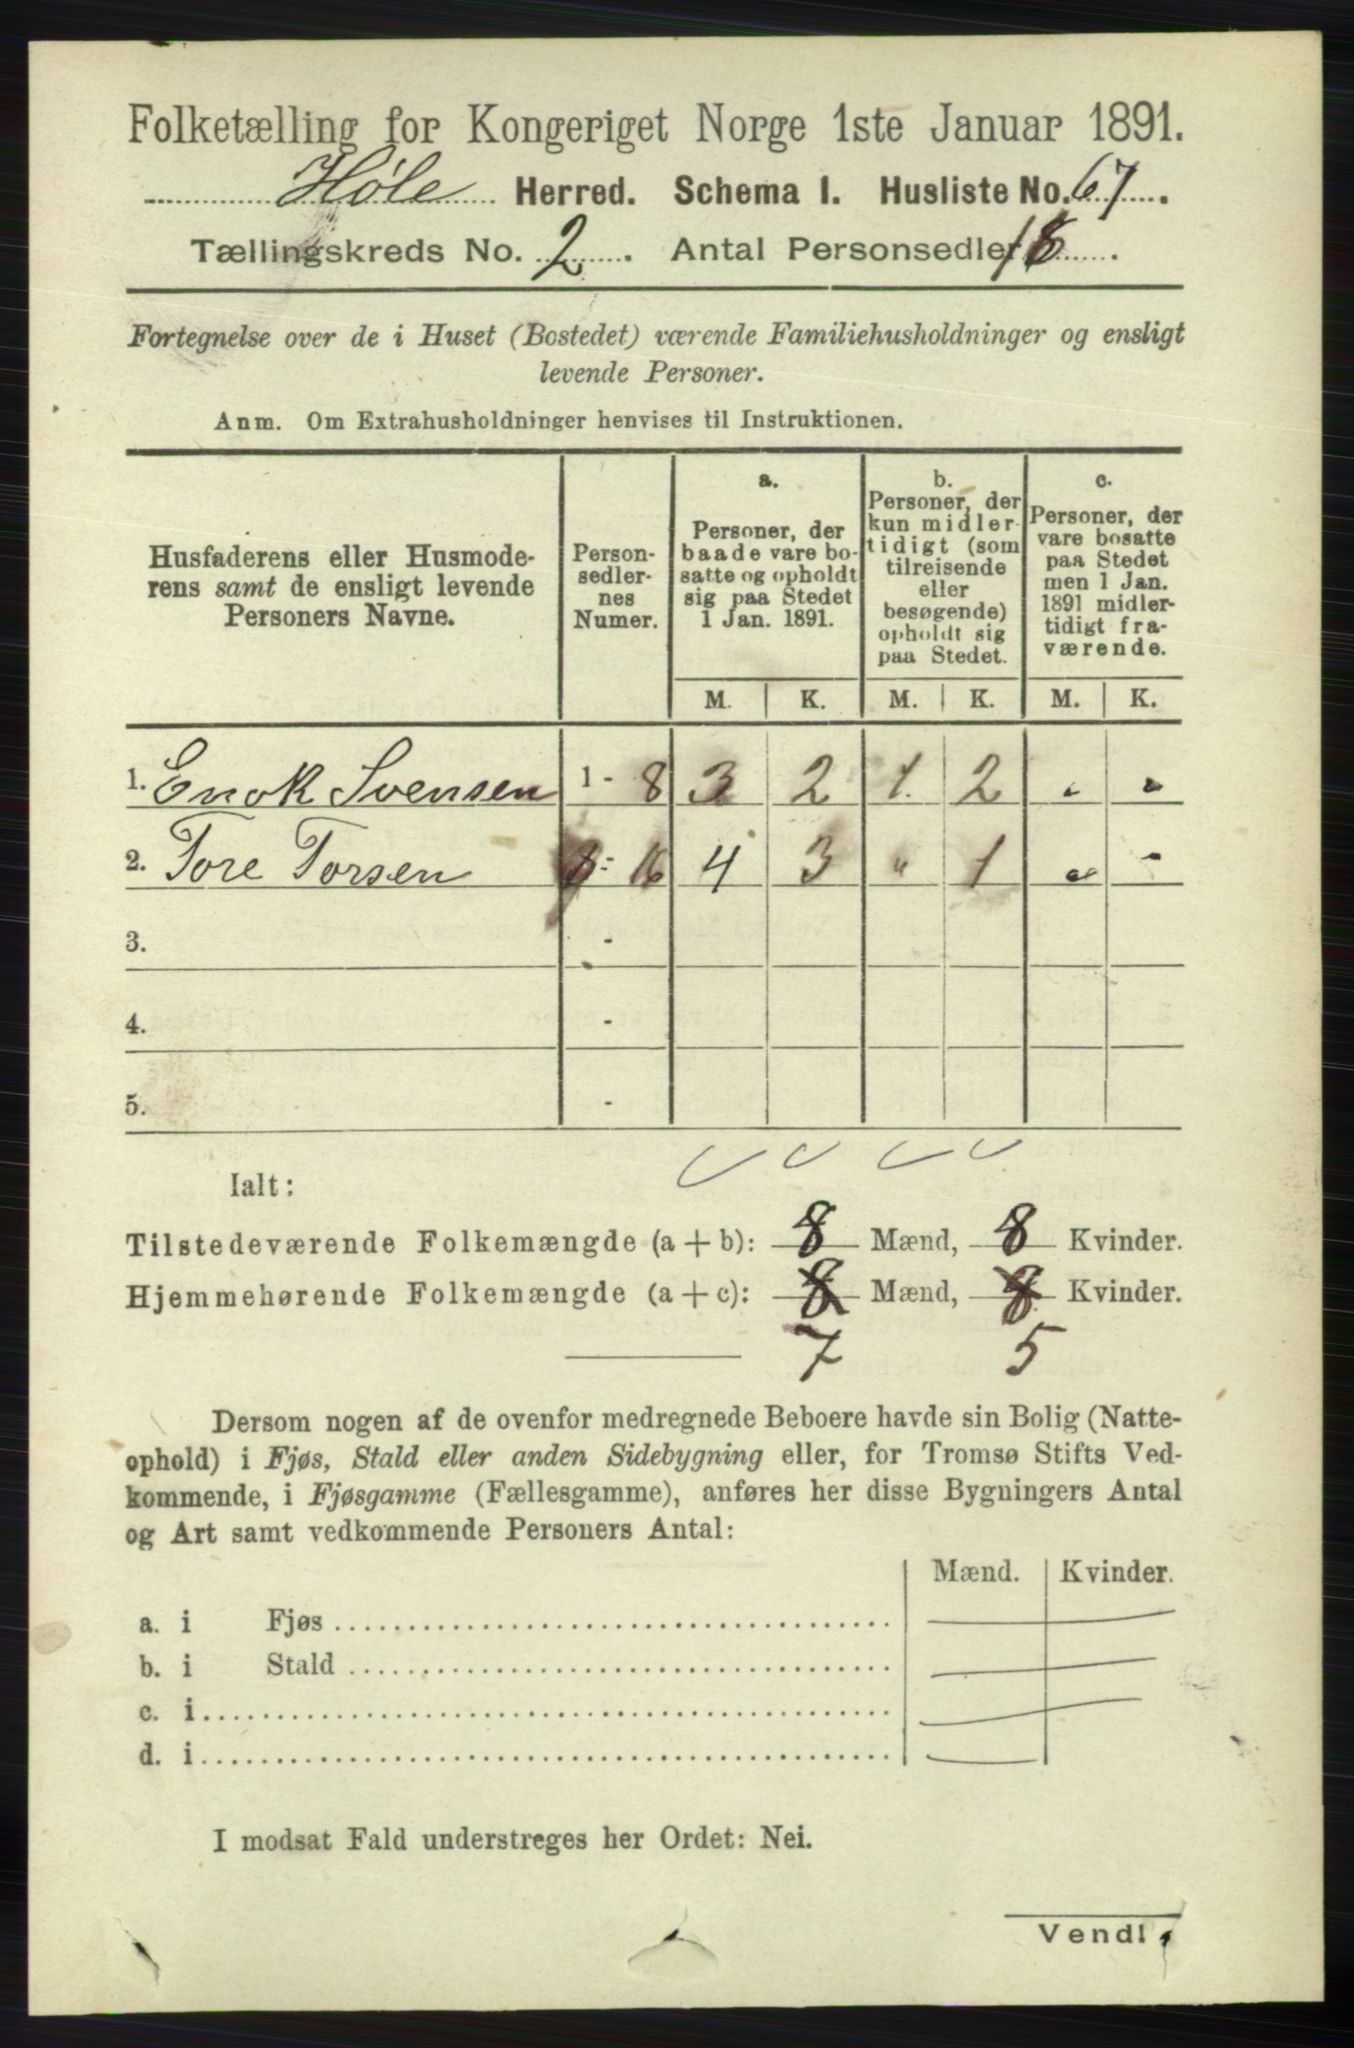 Folketælling for Kongeriget Norge 1ste Januar 1891.
Høle Herred. Schema I. Husliste No. 67.
Tællingskreds No. 2. Antal Personsedler 16.
Fortegnelse over de i Huset (Bostedet) værende Familiehusholdninger og ensligt
levende Personer.
Anm. Om Extrahusholdninger henvises til Instruktionen.
Husfaderens eller Husmode-
rens samt de ensligt levende
Personers Navne.
Person-
sedler-
nes
Numer.
a.
Personer, der
baade vare bo-
satte og opholdt
sig paa Stedet
1 Jan. 1891.
b.
Personer, der
kun midler-
tidigt (som
tilreisende
eller
besøgende)
opholdt sig
paa Stedet.
c.
Personer, der
vare bosatte
paa Stedet
men 1 Jan.
1891 midler-
tidigt fra-
værende.
M. K. M. K. M. K.
1. Enok Svensen 1 - 8 3 2 1. 2 " "
2. Tore Torsen - 16 4 3 " 1 " -
3. -
4. -
5. -
Ialt:
Tilstedeværende Folkemængde (a + b): 8 Mænd, 8 Kvinder.
Hjemmehørende Folkemængde (a + c): 8 Mænd, 8 Kvinder.
7 5
Dersom nogen af de ovenfor medregnede Beboere havde sin Bolig (Natte-
ophold) i Fjøs, Stald eller anden Sidebygning eller, for Tromsø Stifts Ved-
kommende, i Fjøsgamme (Fællesgamme), anføres her disse Bygningers Antal
og Art samt vedkommende Personers Antal:
Mænd. Kvinder.
a. i Fjøs
b. i Stald
c. i
d. i
I modsat Fald understreges her Ordet: Nei.
Vend!